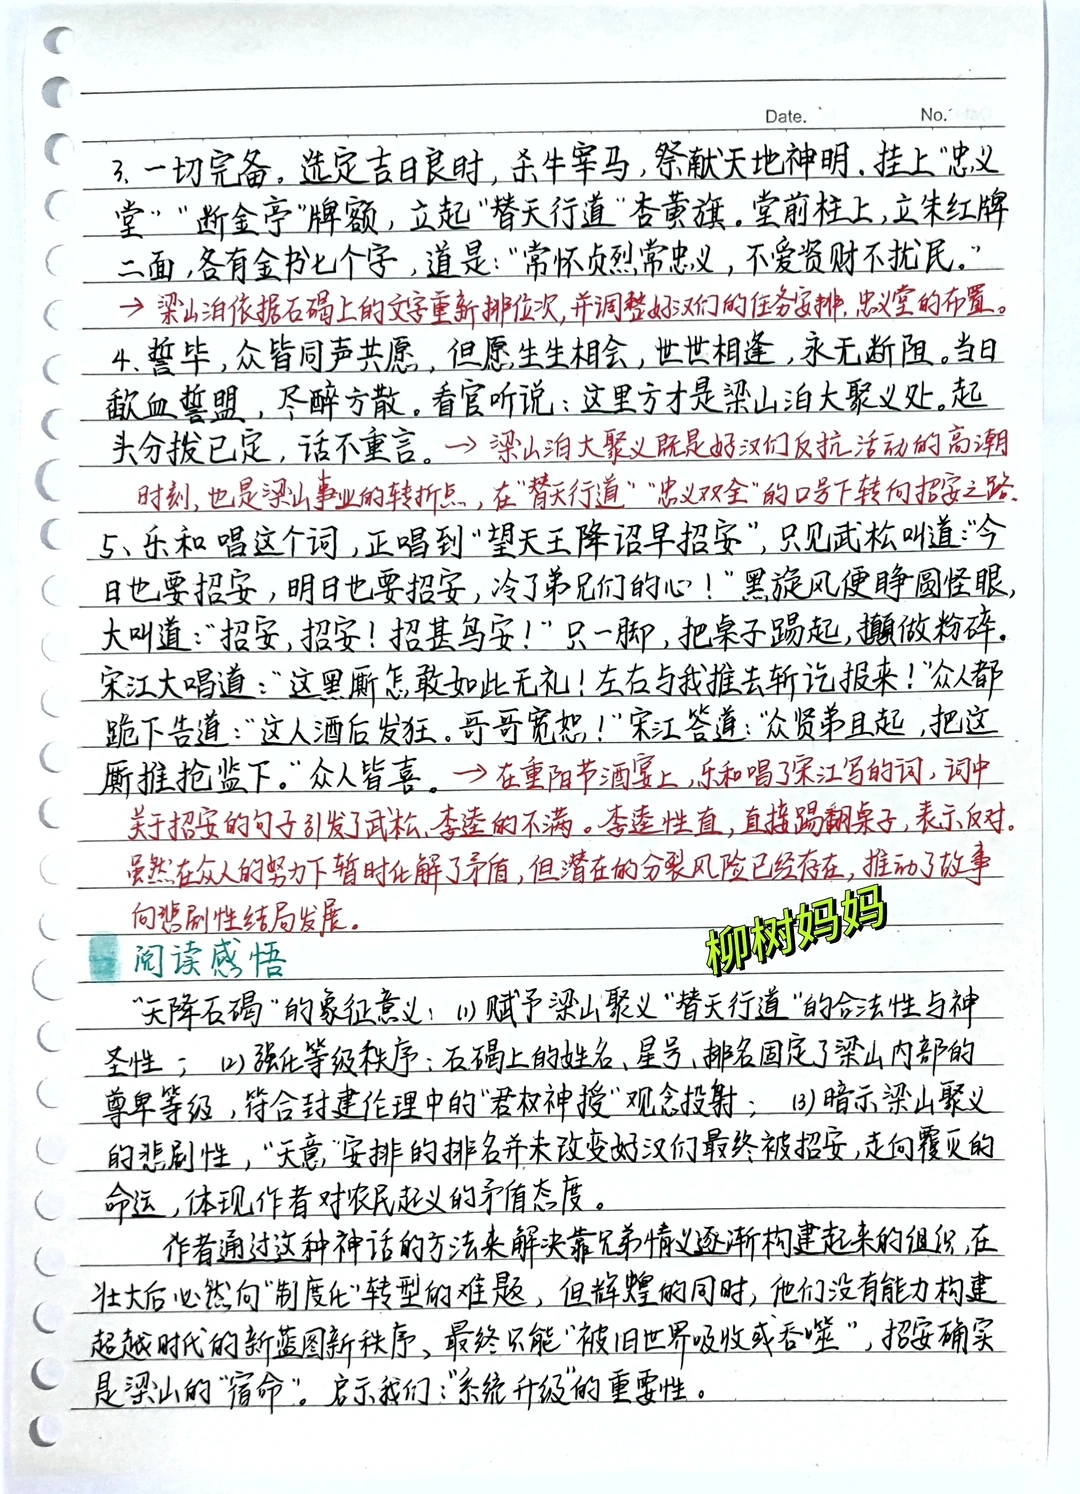 Date.
No.
3、一切完备。选定吉日良时，杀牛宰马，祭献天地神明。挂上“忠义
堂”“断金亭”牌额，立起“替天行道”杏黄旗。堂前柱上，立朱红牌
二面，各有金书七个字，道是：“常怀贞烈常忠义，不爱资财不扰民。”
→梁山泊依据石碣上的文字重新排位次，并调整好汉们的任务安排，忠义堂的布置。
4、誓毕，众皆同声共愿，但愿生生相会，世世相逢，永无断阻。当日
歃血誓盟，尽醉方散。看官听说：这里方才是梁山泊大聚义处。起
头分拨已定，话不重言。→梁山泊大聚义既是好汉们反抗活动的高潮
时刻，也是梁山事业的转折点，在“替天行道”“忠义双全”的口号下转向招安之路。
5、乐和唱这个词，正唱到“望天王降诏早招安”，只见武松叫道：“今
日也要招安，明日也要招安，冷了弟兄们的心！”黑旋风便睁圆怪眼，
大叫道：“招安，招安！招甚鸟安！”只一脚，把桌子踢起，攧做粉碎。
宋江大唱道：“这黑厮怎敢如此无礼！左右与我推去斩讫报来！”众人都
跪下告道：“这人酒后发狂。哥哥宽恕！”宋江答道：“众贤弟且起，把这
厮推抢监下。”众人皆喜。→在重阳节酒宴上，乐和唱了宋江写的词，词中
关于招安的句子引发了武松、李逵的不满。李逵性直，直接踢翻桌子，表示反对。
虽然在众人的努力下暂时化解了矛盾，但潜在的分裂风险已经存在，推动了故事
向悲剧性结局发展。
柳树妈妈
阅读感悟
“天降石碣”的象征意义：(1)赋予梁山聚义“替天行道”的合法性与神
圣性；(2)强化等级秩序：石碣上的姓名、星号、排名固定了梁山内部的
尊卑等级，符合封建伦理中的“君权神授”观念投射；(3)暗示梁山聚义
的悲剧性，“天意”安排的排名并未改变好汉们最终被招安，走向覆灭的
命运，体现作者对农民起义的矛盾态度。
作者通过这种神话的方法来解决靠兄弟情义逐渐构建起来的组织，在
壮大后必然向“制度化”转型的难题，但辉煌的同时，他们没有能力构建
超越时代的新蓝图新秩序、最终只能“被旧世界吸收或吞噬”，招安确实
是梁山的“宿命”。启示我们：“系统升级”的重要性。